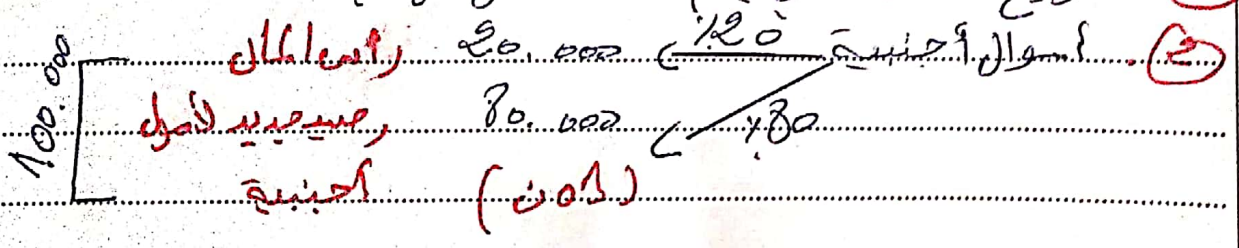 ② . أموال أجنبية %20 20.000 رأس المال
%80 80.000 رصيد جديد لأموال
(دائن) أجنبية
100.000